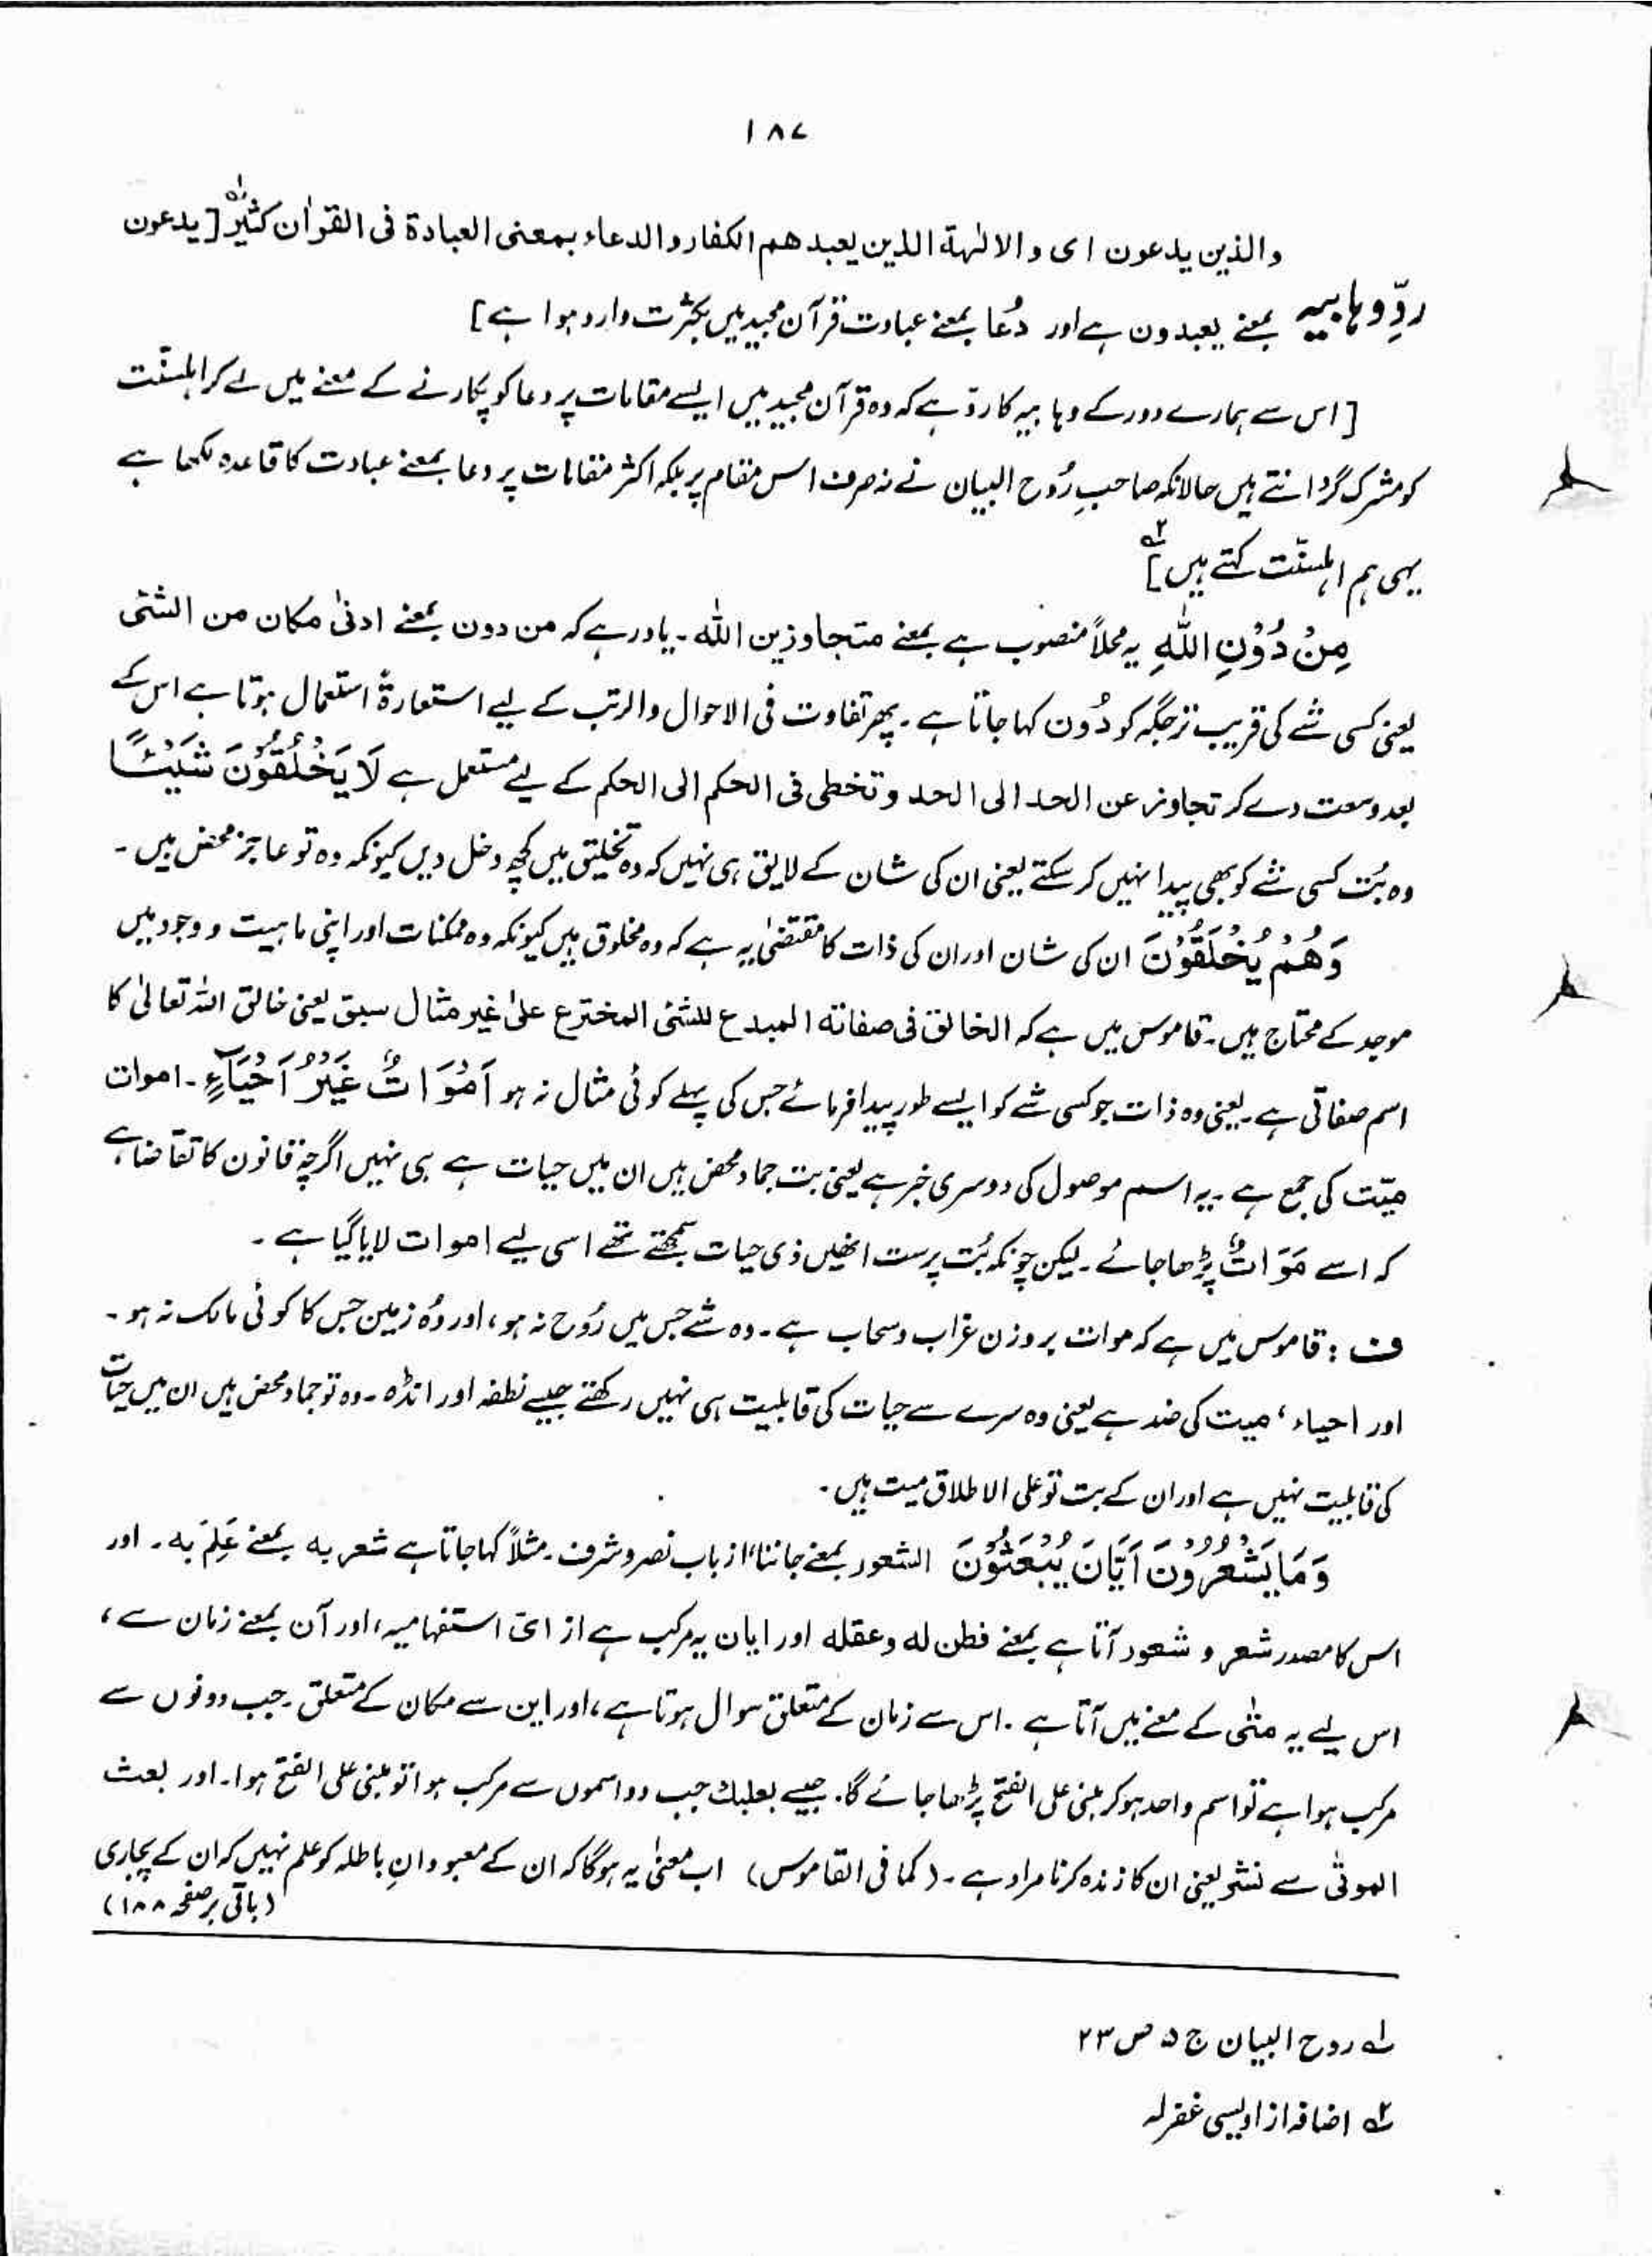 ۱۸۷
والذین یدعون ای والالٰہة الذین یعبدھم الکفار والدعاء بمعنی العبادة فی القرآن کثیرٌ۱؎ [یدعون
ردِّ وہابیہ بمعنے یعبدون ہے اور دُعا بمعنے عبادت قرآن مجید میں بکثرت وارد ہوا ہے]
[اس سے ہمارے دور کے وہابیہ کا ردّ ہے کہ وہ قرآن مجید میں ایسے مقامات پر دعا کو پکارنے کے معنے میں لے کر اہلسنّت
کو مشرک گردانتے ہیں حالانکہ صاحبِ رُوح البیان نے نہ صرف اس مقام پر بلکہ اکثر مقامات پر دعا بمعنے عبادت کا قاعدہ لکھا ہے
یہی ہم اہلسنّت کہتے ہیں]۲؎
مِنْ دُوْنِ اللّٰہِ یہ محلاً منصوب ہے بمعنے متجاوزین اللّٰہ ۔ یاد رہے کہ من دون بمعنے ادنیٰ مکان من الشئی
یعنی کسی شے کی قریب تر جگہ کو دُون کہا جاتا ہے ۔ پھر تفاوت فی الاحوال والرتب کے لیے استعارۃً استعمال ہوتا ہے اس کے
بعد وسعت دے کر تجاوز عن الحد الی الحد و تخطی فی الحکم الی الحکم کے لیے مستعمل ہے لَا یَخْلُقُوْنَ شَیْئًا
وہ بُت کسی شے کو بھی پیدا نہیں کر سکتے یعنی ان کی شان کے لایق ہی نہیں کہ وہ تخلیق میں کچھ دخل دیں کیونکہ وہ تو عاجز محض ہیں ۔
وَھُمْ یُخْلَقُوْنَ ان کی شان اور ان کی ذات کا مقتضیٰ یہ ہے کہ وہ مخلوق ہیں کیونکہ وہ ممکنات اور اپنی ماہیت و وجود میں
موجد کے محتاج ہیں ۔ قاموس میں ہے کہ الخالق فی صفاته المبدع للشئی المخترع علیٰ غیر مثال سبق یعنی خالق اللہ تعالیٰ کا
اسم صفاتی ہے ۔ یعنی وہ ذات جو کسی شے کو ایسے طور پیدا فرمائے جس کی پہلے کوئی مثال نہ ہو اَمْوَاتٌ غَیْرُ اَحْیَآءٍ ۔ اموات
میّت کی جمع ہے ۔ یہ اسم موصول کی دوسری خبر ہے یعنی بت جماد محض ہیں ان میں حیات ہے ہی نہیں اگرچہ قانون کا تقاضا ہے
کہ اسے مَوَاتٌ پڑھا جائے ۔ لیکن چونکہ بُت پرست انھیں ذی حیات سمجھتے تھے اسی لیے اموات لایا گیا ہے ۔
ف : قاموس میں ہے کہ موات بروزن غراب و سحاب ہے ۔ وہ شے جس میں رُوح نہ ہو ، اور وُہ زمین جس کا کوئی مالک نہ ہو ۔
اور احیاء ، میت کی ضد ہے یعنی وہ سرے سے حیات کی قابلیت ہی نہیں رکھتے جیسے نطفہ اور انڈہ ۔ وہ تو جماد محض ہیں ان میں حیات
کی قابلیت نہیں ہے اور ان کے بت تو علی الاطلاق میت ہیں ۔
وَمَا یَشْعُرُوْنَ اَیَّانَ یُبْعَثُوْنَ الشعور بمعنے جاننا ، از باب نصر و شرف ۔ مثلاً کہا جاتا ہے شعر به بمعنے عَلِمَ به ۔ اور
اس کا مصدر شعر و شعور آتا ہے بمعنے فطن له و عقله اور ایان یہ مرکب ہے از ایّ استفہامیہ ، اور آن بمعنے زمان سے ،
اس لیے یہ متٰی کے معنے میں آتا ہے ۔ اس سے زمان کے متعلق سوال ہوتا ہے ، اور این سے مکان کے متعلق ۔ جب دونوں سے
مرکب ہوا ہے تو اسم واحد ہو کر مبنی علی الفتح پڑھا جائے گا ۔ جیسے بعلبک جب دو اسموں سے مرکب ہوا تو مبنی علی الفتح ہوا ۔ اور بعث
الموتٰی سے نشر یعنی ان کا زندہ کرنا مراد ہے ۔ (کما فی القاموس) اب معنیٰ یہ ہو گا کہ ان کے معبودانِ باطلہ کو علم نہیں کہ ان کے پجاری
(باقی بر صفحہ ۱۸۸)
۱؎ روح البیان ج ۵ ص ۲۳
۲؎ اضافہ از اویسی غفرلہ